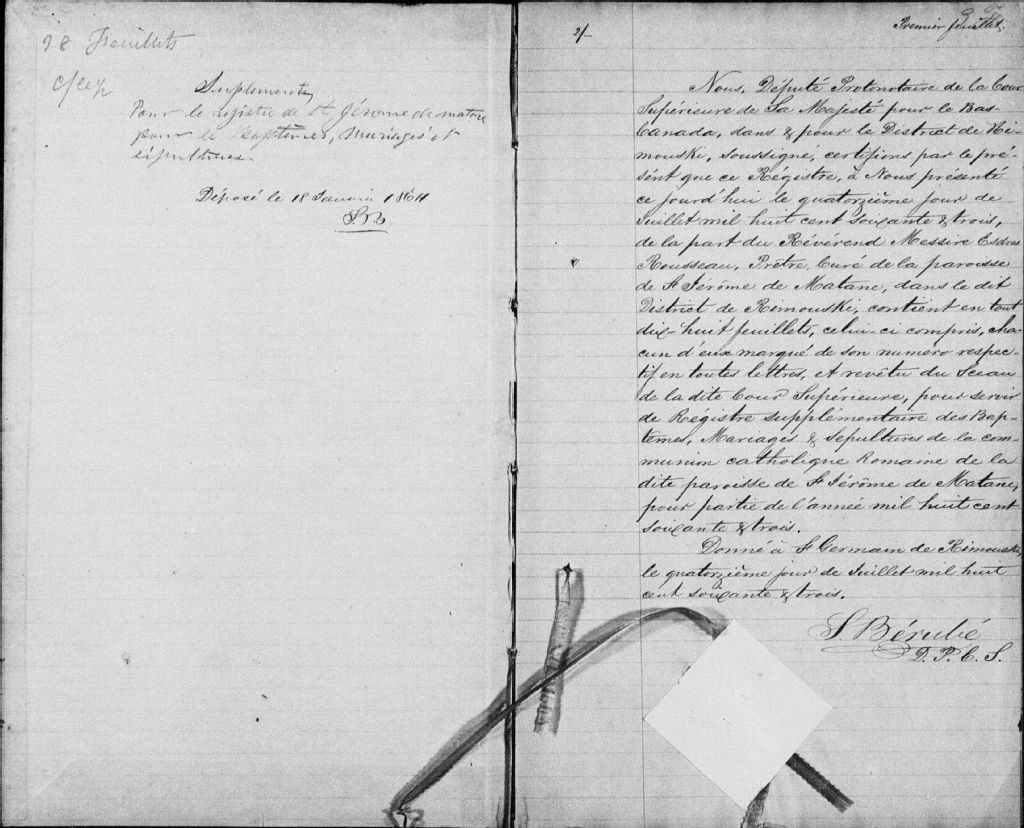 18 Feuillets
Suplement
Pour le registre de St Gérome de matane
pour les Baptêmes, Mariages et
sépultures.
Déposé le 18 Janvier 1864
S.B
2/-
Premier feuillet.
Nous, Député Protonotaire de la Cour
Supérieure de Sa Majesté pour le Bas-
Canada, dans & pour le District de Ri-
mouski, soussigné, certifions par le pré-
sént que ce Régistre, à Nous présenté
ce jourd'hui le quatorzième jour de
Juillet mil huit cent soixante & trois,
de la part du Révérend Messire Esdras
Rousseau, Prêtre, Curé de la paroisse
de St Jérôme de Matane, dans le dit
District de Rimouski, contient en tout
dix-huit feuillets, celui-ci compris, cha-
cun d'eux marqué de son numero respec-
tif en toutes lettres, et revêtu du Sceau
de la dite Cour Supérieure, pour servir
de Régistre supplémentaire des Bap-
têmes, Mariages & Sépultures de la com-
munion catholique Romaine de la
dite paroisse de St Jérôme de Matane,
pour partie de l'année mil huit cent
soixante & trois.
Donné à St Germain de Rimouski,
le quatorzième jour de Juillet mil huit
cent soixante & trois.
S. Bérubé
D. P. C. S.